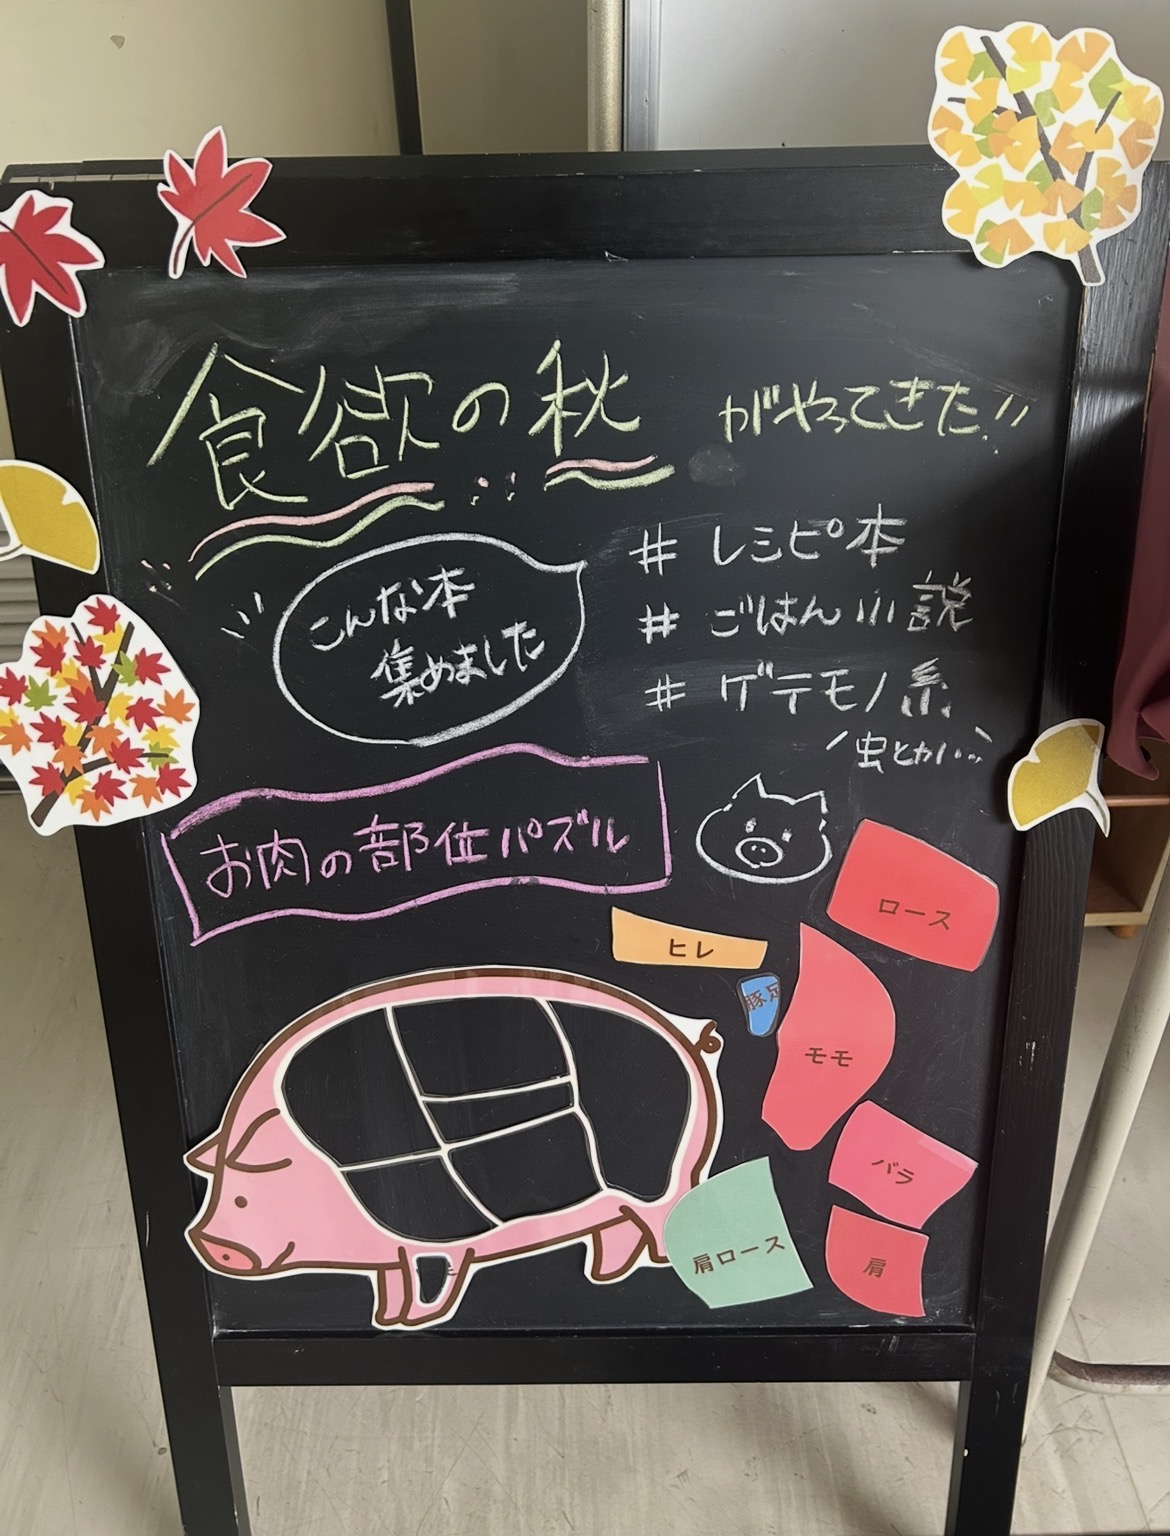 食欲の秋 がやってきた!!
こんな本
集めました
# レシピ本
# ごはん小説
# ゲテモノ系
虫とか…
お肉の部位パズル
ロース
ヒレ
豚足
モモ
バラ
肩ロース
肩